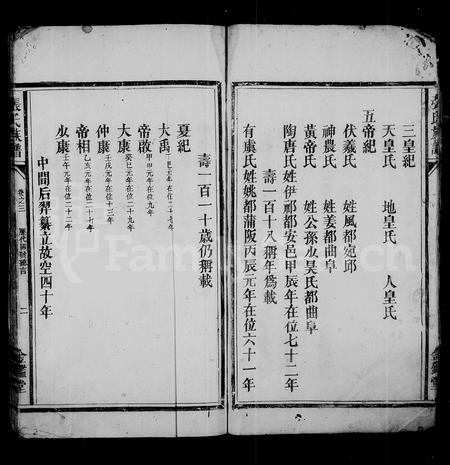 三皇紀
天皇氏 地皇氏 人皇氏
五帝紀
伏羲氏 姓風都宛邱
神農氏 姓姜都曲阜
黃帝氏 姓公孫少昊氏都曲阜
陶唐氏姓伊祁都安邑甲辰年在位七十二年
壽一百一十八稱年為載
有虞氏姓姚都蒲阪丙辰元年在位六十一年
壽一百一十歲仍稱載
夏紀
大禹
帝啟 甲申元年在位九年
大康 癸巳元年在位二十九年
仲康 壬午元年在位十三年
帝相 乙亥元年在位二十七年
少康 壬午元年在位二十二年
中間后羿篡立故空四十年
張氏族譜
卷之二
歷代國號紀言
二
金鑑堂
FamilySearch